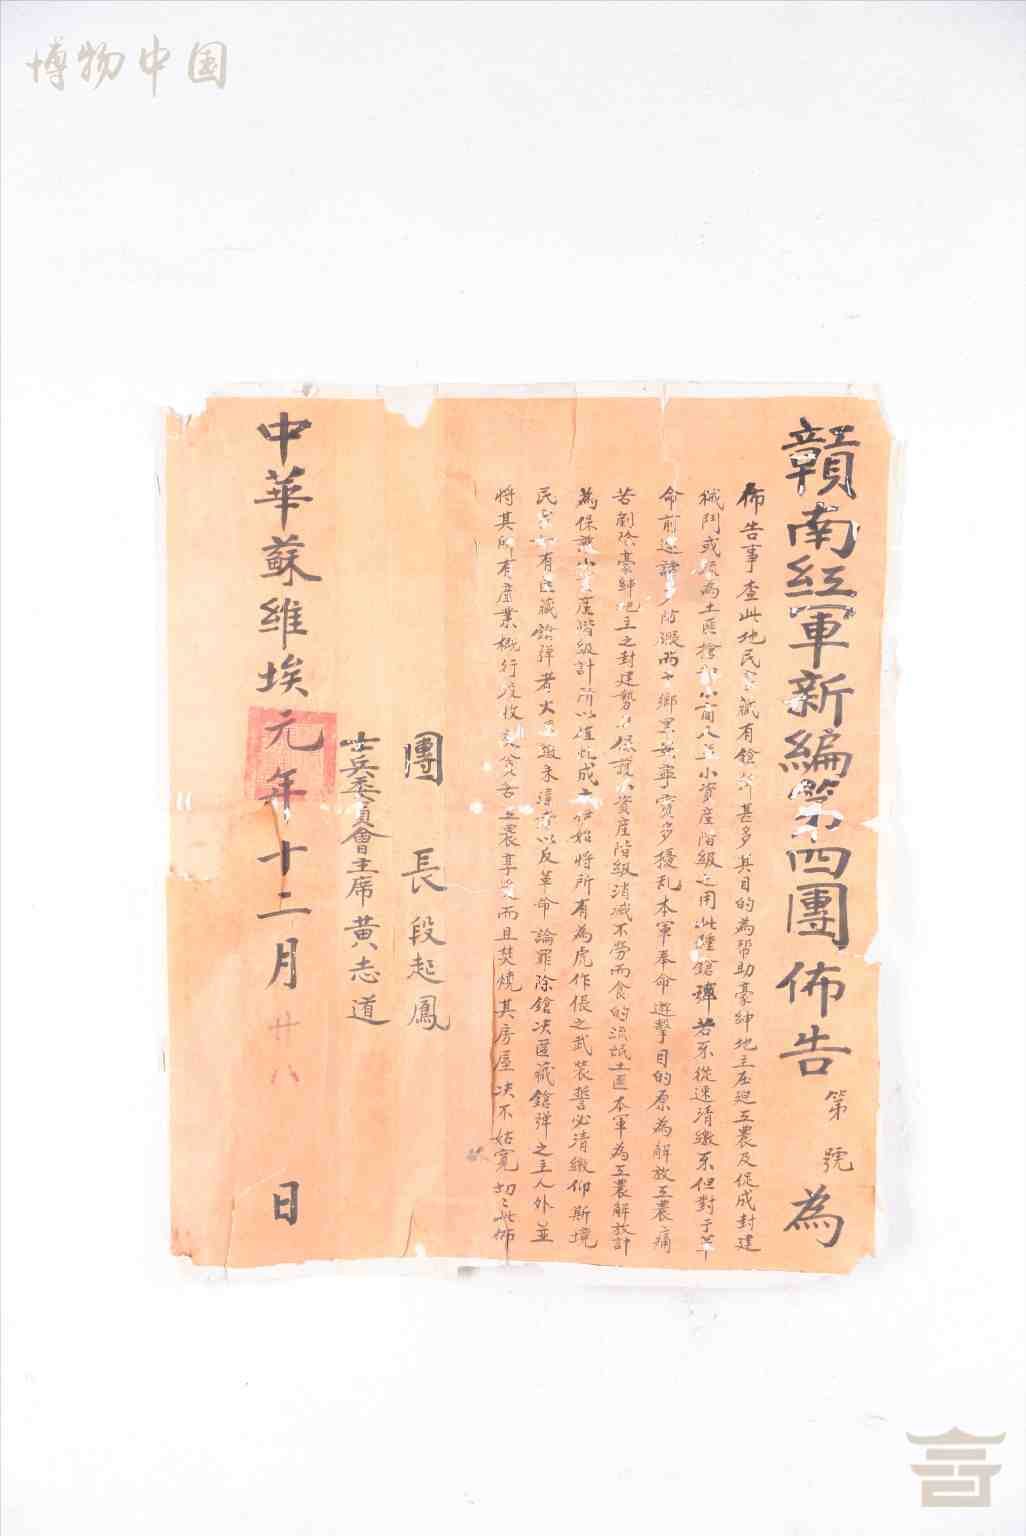 博物中国
贛南紅軍新編第四團佈告 第 號 為
佈告事查此地民家藏有鎗彈甚多其目的為幫助豪紳地主压迫工農及促成封建
械鬥或流為土匪搶劫小商人至小資產階級之用此種鎗彈若不從速清繳不但對于革
命前途諸多防碍而于鄉里無事實多擾乱本軍奉命遊擊目的原為解放工農痛
苦剷除豪紳地主之封建勢力保護小資產階級消滅不勞而食的流氓土匪本軍為工農解放計
為保護小資產階級計所以值此成立伊始將所有為虎作倀之武裝誓必清繳仰斯境
民 有匿藏鎗彈者 以反革命論罪除鎗决匿藏鎗彈之主人外並
將其所有產業概行沒收 工農享受而且焚燒其房屋决不姑寬切切此佈
團 長 段起鳳
士兵委員會主席 黃志道
中華蘇維埃元年十二月廿八日